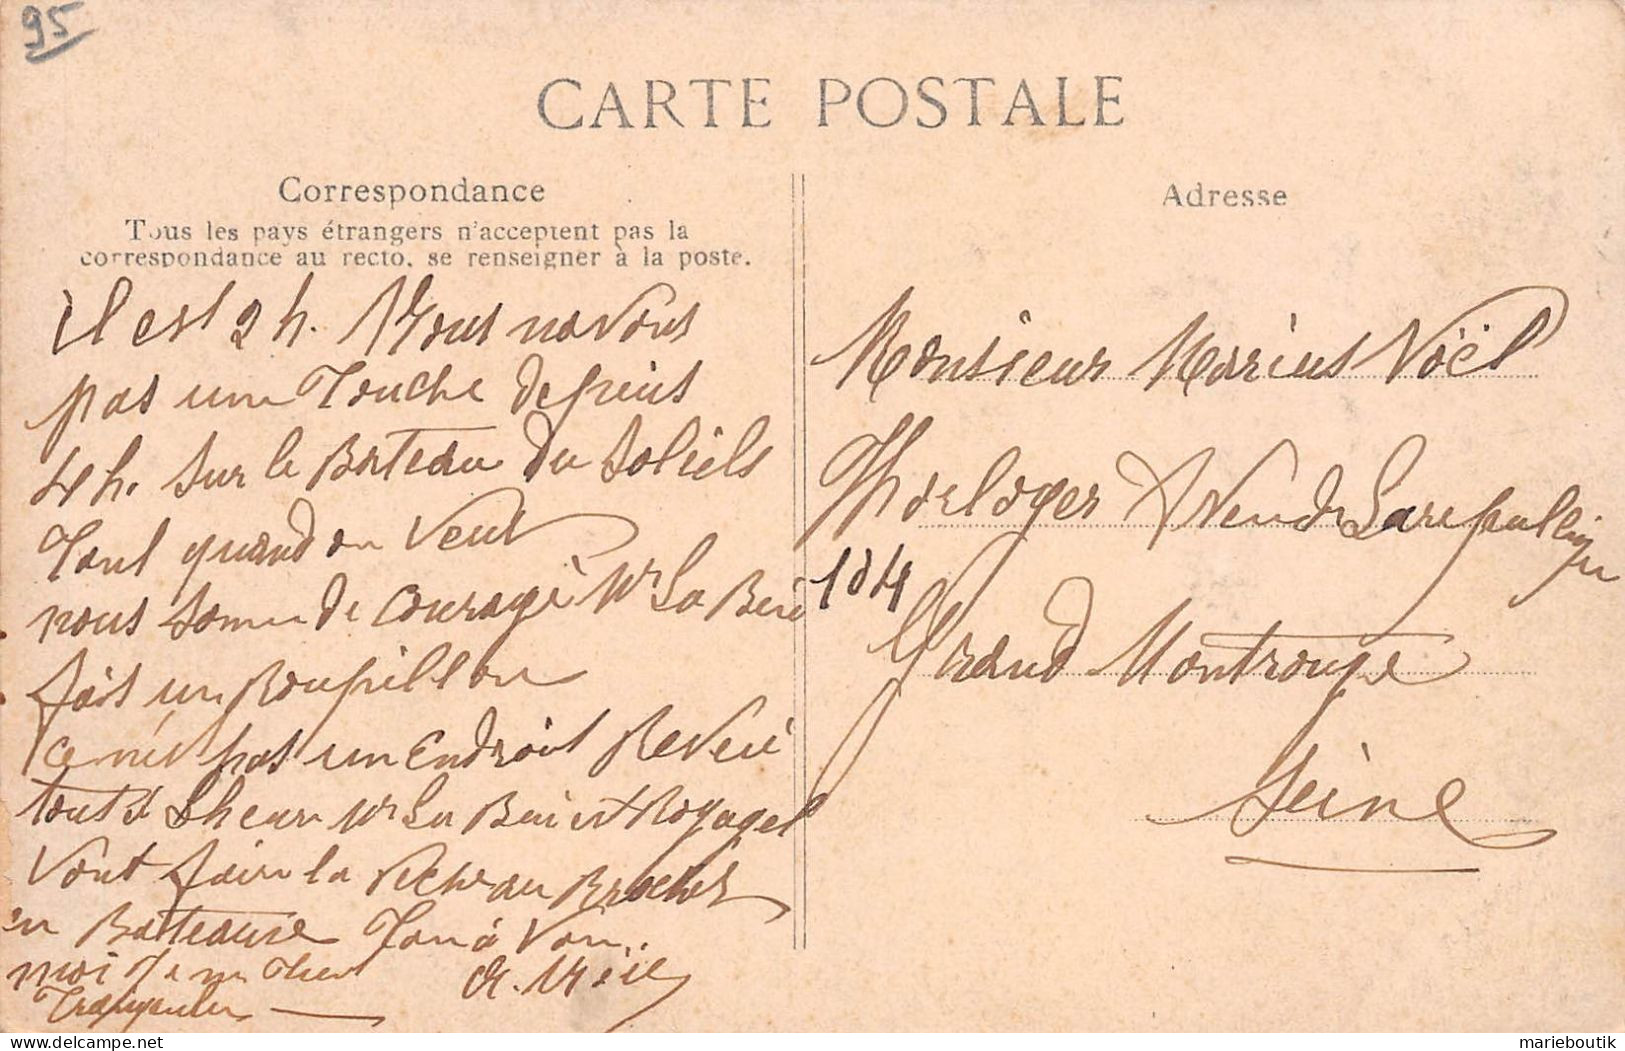 95
CARTE POSTALE
Correspondance
Tous les pays étrangers n'acceptent pas la
correspondance au recto, se renseigner à la poste.
il est 2 h. Nous navons
pas une Touche depuis
4 h. sur le Bateau du Soliels
Tout quand on veut
nous somme de courage Mr La Beri
fait un Roupillon
ce n'est pas un Endroit Revé
toute Lheure Mr La
vont faire la Peche au Brochet
en Bateau
moi Je
A. Noël
Adresse
Monsieur Marius Noël
Horloger
104
Grand Montrouge
Seine
marieboutik
delcampe.net